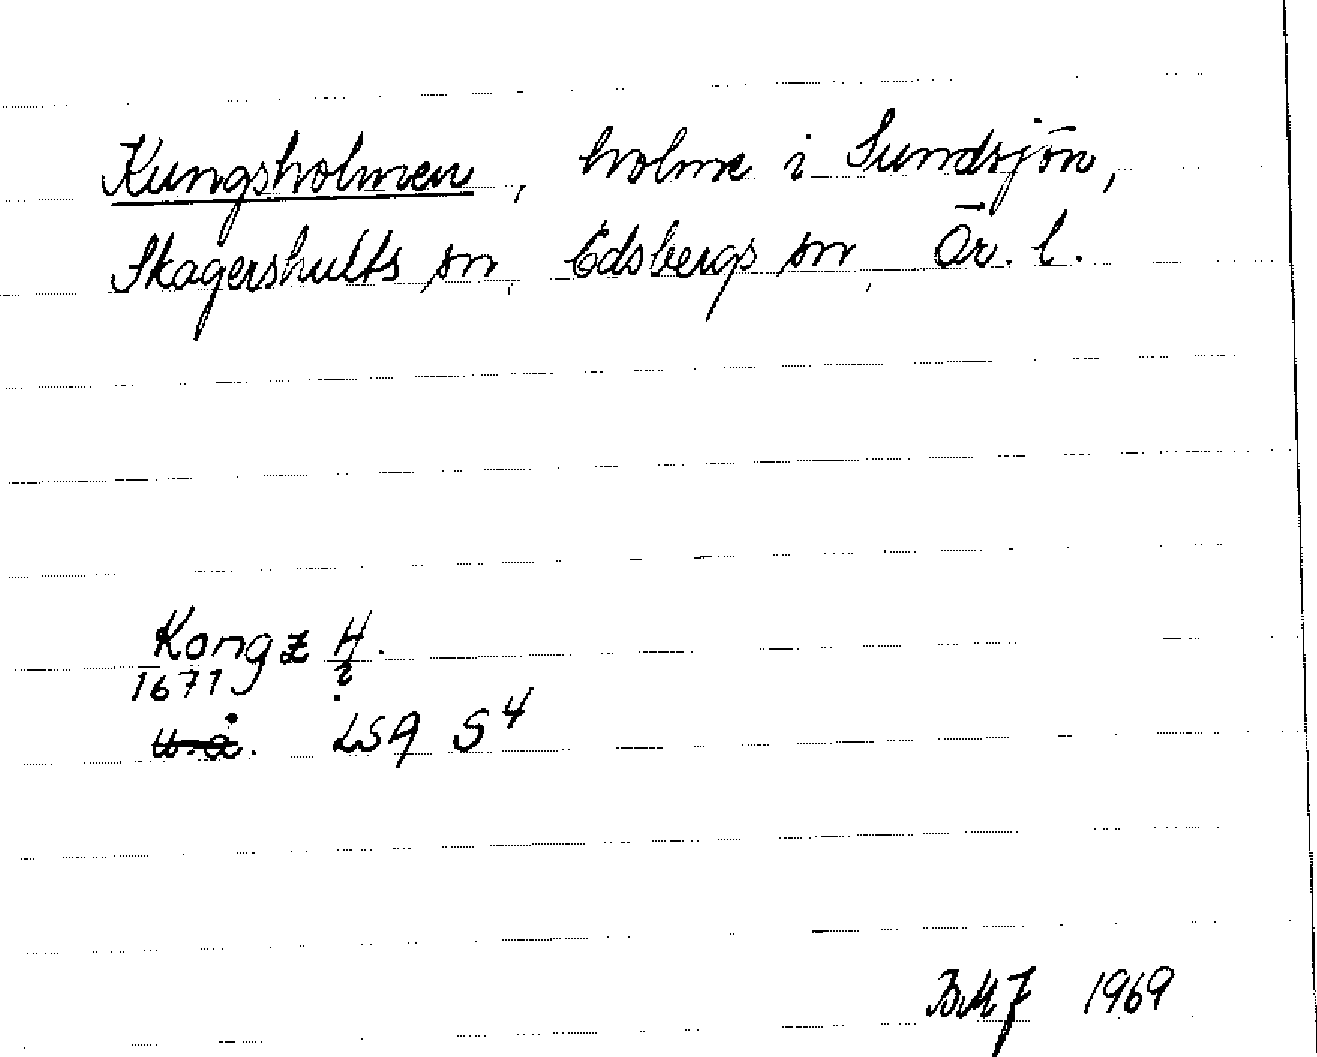 Kungsholmen, holme i Sundsjön,
Skagershults sn, Edsbergs sn, Ör. l.
Kongz H.
1671 ?
u. å. LSA S4
BMJ 1969